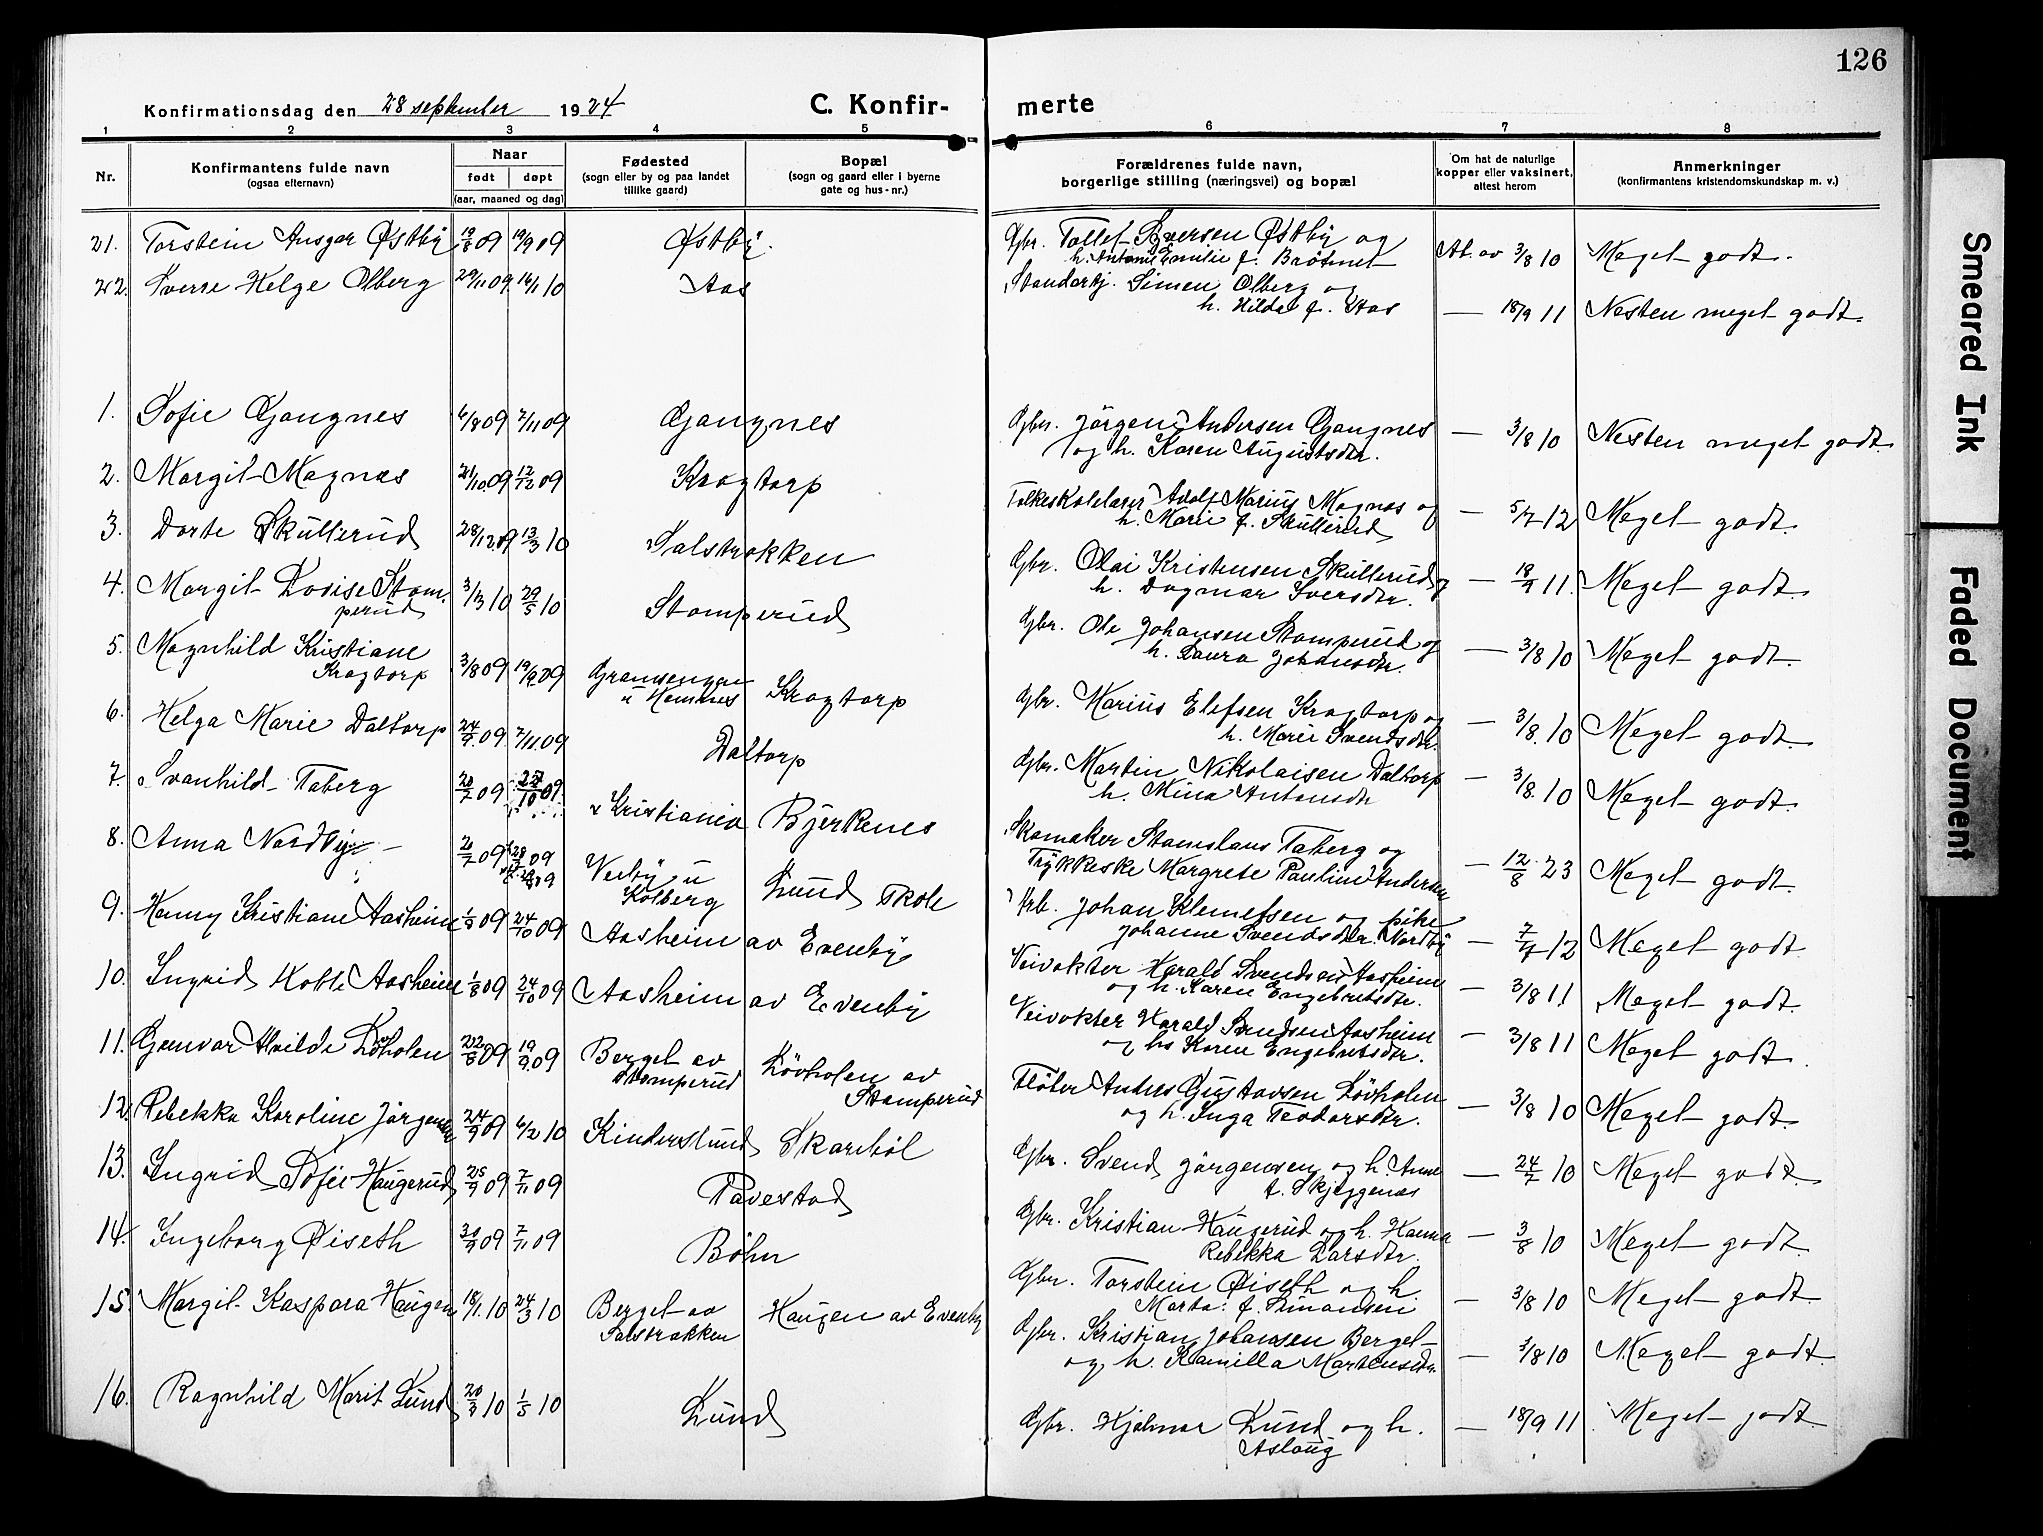 126
Konfirmationsdag den 28 september 1924
C. Konfir-
merte
1 2 3 4 5 6 7 8
Nr.
Konfirmantens fulde navn
(ogsaa efternavn)
Naar
født døpt
(aar, maaned og dag)
Fødested
(sogn eller by og paa landet
tillike gaard)
Bopæl
(sogn og gaard eller i byerne
gate og hus-nr.)
Forældrenes fulde navn,
borgerlige stilling (næringsvei) og bopæl
Om hat de naturlige
kopper eller vaksinert,
attest herom
Anmerkninger
(konfirmantens kristendomskundskap m. v.)
21. Torstein Ansgar Østby 19/8 09 19/9 09 Østby. Gbr. Tollef Syversen Østby og
h. Antonie Emilie f. Brøtnet At. av 3/8 10 Meget godt.
22. Sverre Helge Olberg 29/11 09 16/1 10 Aas Standerkj. Simen Olberg og
h. Hilda f. Aas — 18/9 11 Nesten meget godt.
1. Sofie Gangnes 6/8 09 7/11 09 Gangnes Gbr. Jörgen Andersen Gangnes
og h. Karen Augustsdtr. — 3/8 10 Nesten meget godt.
2. Margit Magnas 21/10 09 12/12 09 Krogtorp Folkeskolelærer Adolf Marius Magnas og
h. Marie f. Skullerud — 5/7 12 Meget godt.
3. Dorte Skullerud 28/12 09 13/3 10 Salstrokken Gbr. Olai Kristensen Skullerud og
h. Dagmar Iversdtr. — 18/9 11. Meget godt.
4. Margit Lovise Stom-
perud 3/3 10 29/5 10 Stomperud Gbr. Ole Johansen Stomperud og
h. Laura Johansdtr. — 3/8 10 Meget godt.
5. Magnhild Kristiane
Krogtorp 3/8 09 19/9 09 Gransengen
u Hemnes Krogtorp Gbr. Marius Elefsen Krogtorp og
h. Marie Svendsdtr. — 3/8. 10 Meget godt.
6. Helga Marie Daltorp 24/9 09. 7/11 09 Daltorp Gbr. Martin Nikolaisen Daltorp
h. Mina Antonsdtr — 3/8. 10 Meget godt.
7. Svanhild Taberg 20/7 09 10 09 Kristiania Bjerkenes Skomaker Stanislaus Taberg og
Trykkeske Margrete Pauline Andersen — 12/8 23 Meget godt.
8. Anna Nordby 2/7 09 09 Veiby u
Kolberg Lund skole Arb. Johan Klemetsen og pike
Johanne Svendsdtr. Nordby — 7/7 12 Meget godt
9. Hanny Kristiane Aasheim 1/8 09 24/10 09 Aasheim av Evenby Veivokter Harald Svendsen Aasheim
og h. Karen Engebretsdtr. — 3/8 11 Meget godt.
10. Ingrid Aasheim 1/8 09 24/10 09 Aasheim av Evenby Veivokter Harald Svendsen Aasheim
og h. Karen Engebretsdtr. — 3/8 11 Meget godt.
11. Gunvor Alvilde Løvholen 22/8 09 19/9 09 Berget av
Stomperud Løvholen av
Stomperud Fløter Anders Gustavsen Løvholen
og h. Inga Teodorsdtr. — 3/8 10 Meget godt.
12. Rebekka Karoline Jörgensen 24/9 09 6/2 10 Kinderslund Skarabøl Gbr. Svend Jörgensen og h. Anne
f. Skjeggenes — 24/7 10 Meget godt.
13. Ingrid Sofie Haugerud 25/9 09 7/11 09 Tavestad Gbr. Kristian Haugerud og h. Hanna
Rebekka Larsdtr. — 3/8 10 Meget godt.
14. Ingeborg Øiseth 30/9 09 7/11 09 Bøhn Gbr. Torstein Øiseth og h.
Marta: f. Simonsen — 3/8 10 Meget godt.
15. Margit Kaspara Haugen 18/1. 10 24/3 10 Berget av
Salstrakken Haugen av Evenby Gbr. Kristian Johansen Berget
og h. Kamilla Martinsdtr. — 3/8 10 Meget godt.
16. Ragnhild Marit Lund 20/3 10 1/5 10 Lund Gbr. Hjalmar Lund og h.
Aslaug — 18/9 11 Meget godt
Smeared Ink
Faded Document